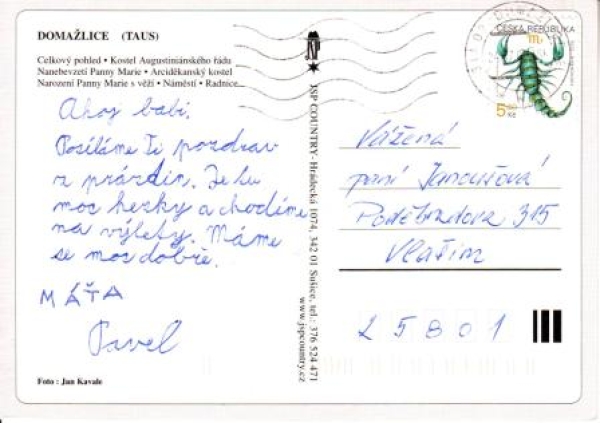 DOMAŽLICE (TAUS)
Celkový pohled • Kostel Augustiniánského řádu
Nanebevzetí Panny Marie • Arciděkanský kostel
Narození Panny Marie s věží • Náměstí • Radnice
Ahoj babi.
Posíláme Ti pozdrav
z prázdin. Je tu
moc hezky a chodíme
na výlety. Máme
se moc dobře.
MÁŤA
Pavel
Foto : Jan Kavale
JSP COUNTRY - Hrádecká 1074, 342 01 Sušice, tel.: 376 524 471
www.jspcountry.cz
ČESKÁ REPUBLIKA
5 Kč
Vážená
paní Janoušová
Poděbradova 315
Vlašim
25801